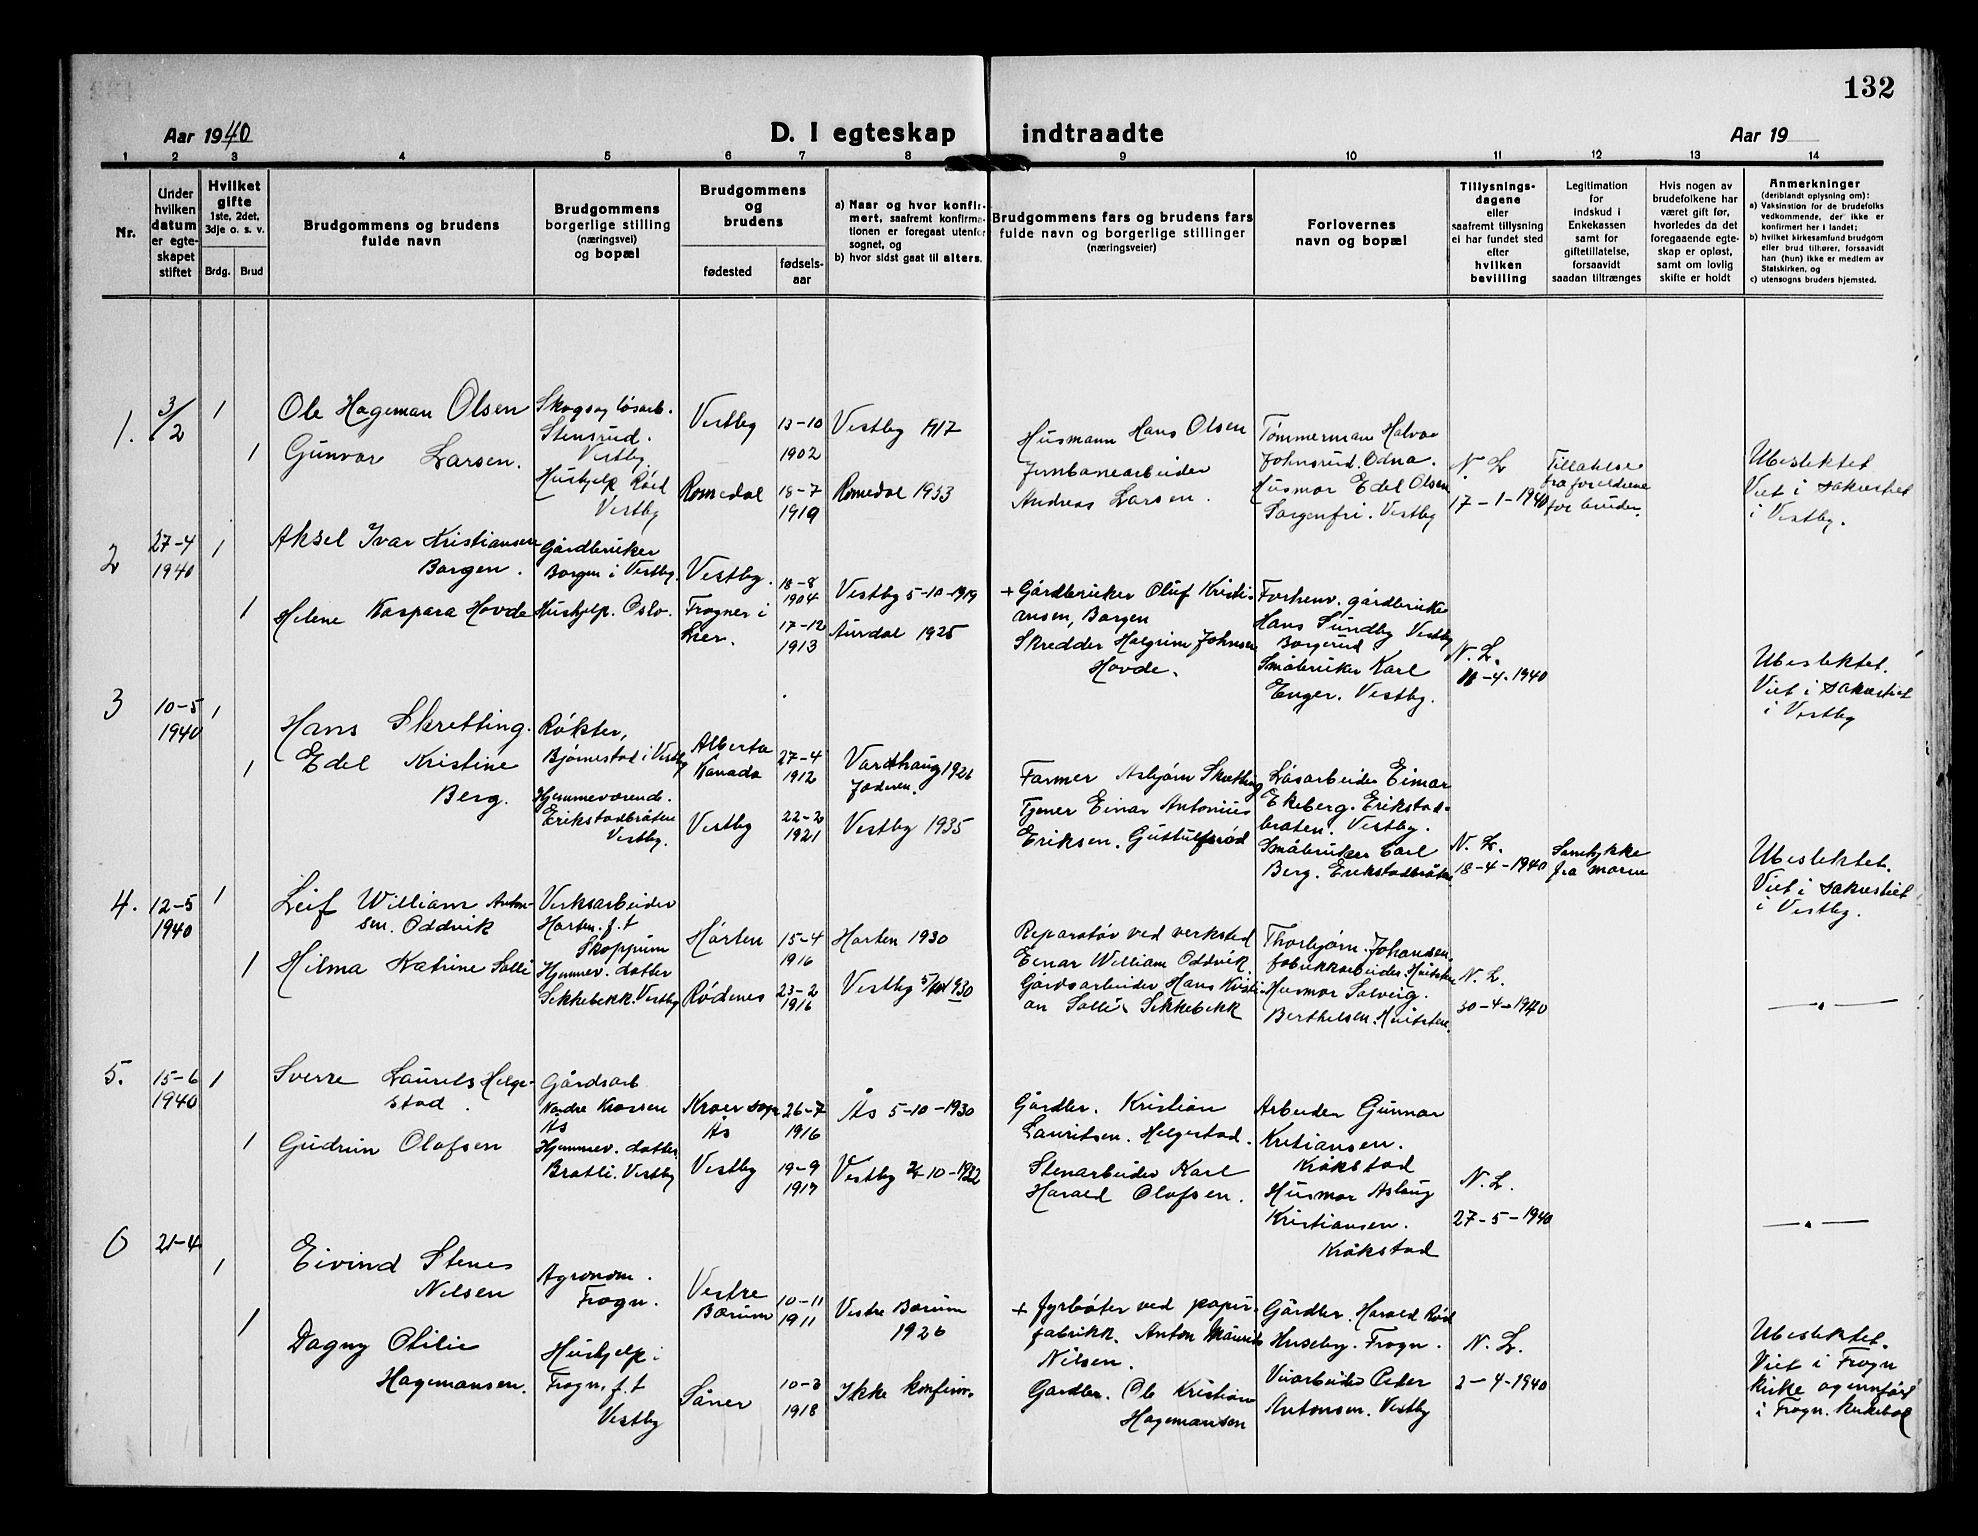 132
Aar 1940
D. I egteskap indtraadte
Aar 19
1 2 3 4 5 6 7 8 9 10 11 12 13 14
Nr.
Under
hvilken
datum
er egte-
skapet
stiftet
Hvilket
gifte
1ste, 2det,
3dje o. s. v.
Brdg. Brud
Brudgommens og brudens
fulde navn
Brudgommens
borgerlige stilling
(næringsvei)
og bopæl
Brudgommens
og
brudens
fødested
fødsels-
aar
a) Naar og hvor konfir-
mert, saafremt konfirma-
tionen er foregaat utenfor
sognet, og
b) hvor sidst gaat til alters.
Brudgommens fars og brudens fars
fulde navn og borgerlige stillinger
(næringsveier)
Forlovernes
navn og bopæl
Tillysnings-
dagene
eller
saafremt tillysning
ei har fundet sted
efter
hvilken
bevilling
Legitimation
for
indskud i
Enkekassen
samt for
giftetillatelse,
forsaavidt
saadan tiltrænges
Hvis nogen av
brudefolkene har
været gift før,
hvorledes da det
foregaaende egte-
skap er opløst,
samt om lovlig
skifte er holdt
Anmerkninger
(deriblandt oplysning om):
a) Vaksination for de brudefolks
vedkommende, der ikke er
konfirmert her i landet;
b) hvilket kirkesamfund brudgom
eller brud tilhører, forsaavidt
han (hun) ikke er medlem av
Statskirken, og
c) utensogns bruders hjemsted.
1.
3/2
1
1
Ole Hageman Olsen
Gunvor Larsen.
Skogs og løsarb.
Stensrud.
Vestby
Hushjelp Røed
Vestby
Vestby
Romedal
13-10
1902
18-7
1919
Vestby 1917
Romedal 1933
Husmann Hans Olsen
Jernbanearbeider
Andreas Larsen.
Tømmerman Halvor
Johnsrud. Odna.
Husmor Edel Olsen
Sorgenfri. Vestby
N. L.
17-1-1940
Tillatelse
fra foreldrene
for bruden.
Ubeslektet
Viet i sakrestiet
i Vestby.
2
27-4
1940
1
1
Aksel Ivar Kristiansen
Borgen.
Helene Kaspara Hovde
Gårdbruker
Borgen i Vestby.
Hushjelp. Oslo.
Vestby.
Frogner i
Lier.
18-8
1904
17-12
1913
Vestby 5-10-1919
Aurdal 1925
+ Gårdbruker Oluf Kristi-
ansen, Borgen
Skredder Halgrim Johnsen
Hovde.
Forhenv. gårdbruker
Hans Sundby Vestby
Borgerud
Småbruker Karl
Enger. Vestby.
N. L.
-4-1940
Ubeslektet.
Viet i sakrestiet
i Vestby
3
10-5
1940
1
1
Hans Skretting.
Edel Kristine
Berg.
Røkter,
Bjørnestad i Vestby
Hjemmeværende.
Erikstadbråten
Vestby.
Alberta
Kanada
Vestby
27-4
1912
22-2
1921
Vardhaug 1926
Jæderen.
Vestby 1935
Farmer Asbjørn Skretting
Tjener Einar Antonius
Eriksen.
Løsarbeider Eimar
Ekeberg. Erikstad-
braten. Vestby.
Småbruker Carl
Berg. Erikstadbråten
N. L.
18-4-1940
Samtykke
fra moren
Ubeslektet.
Viet i sakrestiet
i Vestby.
4.
12-5
1940
1
1
Leif William Anton-
sen. Oddvik
Hilma Katrine Solli
Verksarbeider
Horten. f.t
Skoppum
Hjemmev. datter
Sikkebekk. Vestby
Horten
Rødenes
15-4
1916
23-2
1916
Horten 1930
Vestby 5/10 1930
Reparatør ved verksted
Einar William Oddvik.
Gårdsarbeider Hans Kristi-
an Solli. Sikkebekk
Thorbjørn. Johansen.
fabrikkarbeider. Hvitsten
Husmor Solveig.
Berthelsen. Hvitsten.
N. L.
30-4-1940
— " —
5.
15-6
1940
1
1
Sverre Laurits Helge-
stad.
Gudrun Olafsen
Gårdsarb
Nordre Krossen
Ås
Hjemmev. datter.
Bratli. Vestby
Kroer sogn
Ås
Vestby
26-7
1916
19-9
1917
Ås 5-10-1930
Vestby 2-10-1932
Gårdbr. Kristian
Lauritsen. Helgestad.
Stenarbeider Karl
Harald Olafsen.
Arbeider Gunnar
Kristiansen.
Kråkstad
Husmor Aslaug
Kristiansen.
Kråkstad
N. L.
27-5-1940
— " —
6
21-4
1
1
Eivind Stenes
Nilsen
Dagny Otilie
Hagemansen.
Agronom.
Frogn.
Hushjelp i
Frogn. f.t
Vestby
Vestre
Bærum
Såner
10-11
1911
10-3
1918
Vestre Bærum
1926
Ikke konfirm.
+ fyrbøter ved papir-
fabrikk. Anton Maurits
Nilsen.
Gardbr. Ole Kristian
Hagemansen
Gårdbr. Harald Rød
Huseby. Frogn.
Veiarbeider Peder
Antonsen. Vestby
N. L.
2-4-1940
Ubeslektet.
Viet i Frogn
kirke og innført
i Frogn. kirkebok